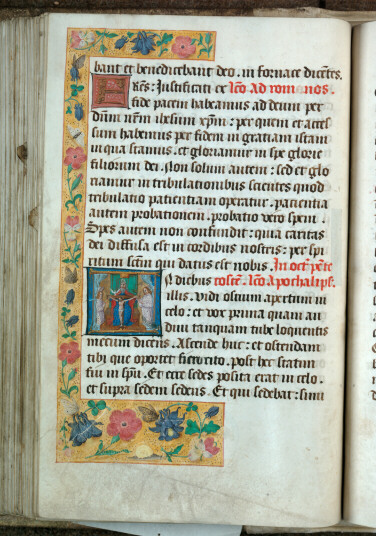 bant et benedicebant deo. in fornace dicētes.
Frēs: Justificati ex Lc̄o Ad romanos.
fide pacem habeamus ad deum per
dūm nr̄m ihesum xp̄m: per quem et acces
sum habemus per fidem in gratiam istam
in qua stamus. et gloriamur in spe glorie
filiorum dei. Non solum autem: sed et glo
riamur in tribulationibus scientes quod
tribulatio patientiam operatur. patientia
autem probationem. probatio vero spem.
Spes autem non confundit: quia caritas
dei diffusa est in cordibus nostris: per spi
ritum sctm̄ qui datus est nobis. In oct̄
In diebus Lc̄o Apochalips̄.
illis. Vidi ostium apertum in
celo: et vox prima quam au
diui tanquam tube loquentis
mecum dicens. Ascende huc: et ostendam
tibi que oportet fieri cito. post hec statim
fui in spū. Et ecce sedes posita erat in celo.
et supra sedem sedens. Et qui sedebat: simi